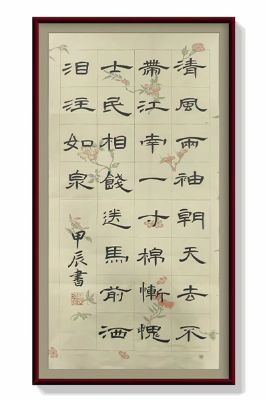 清風兩袖朝天去不
帶江南一寸棉慚愧
士民相餞送馬前洒
泪注如泉
甲辰書